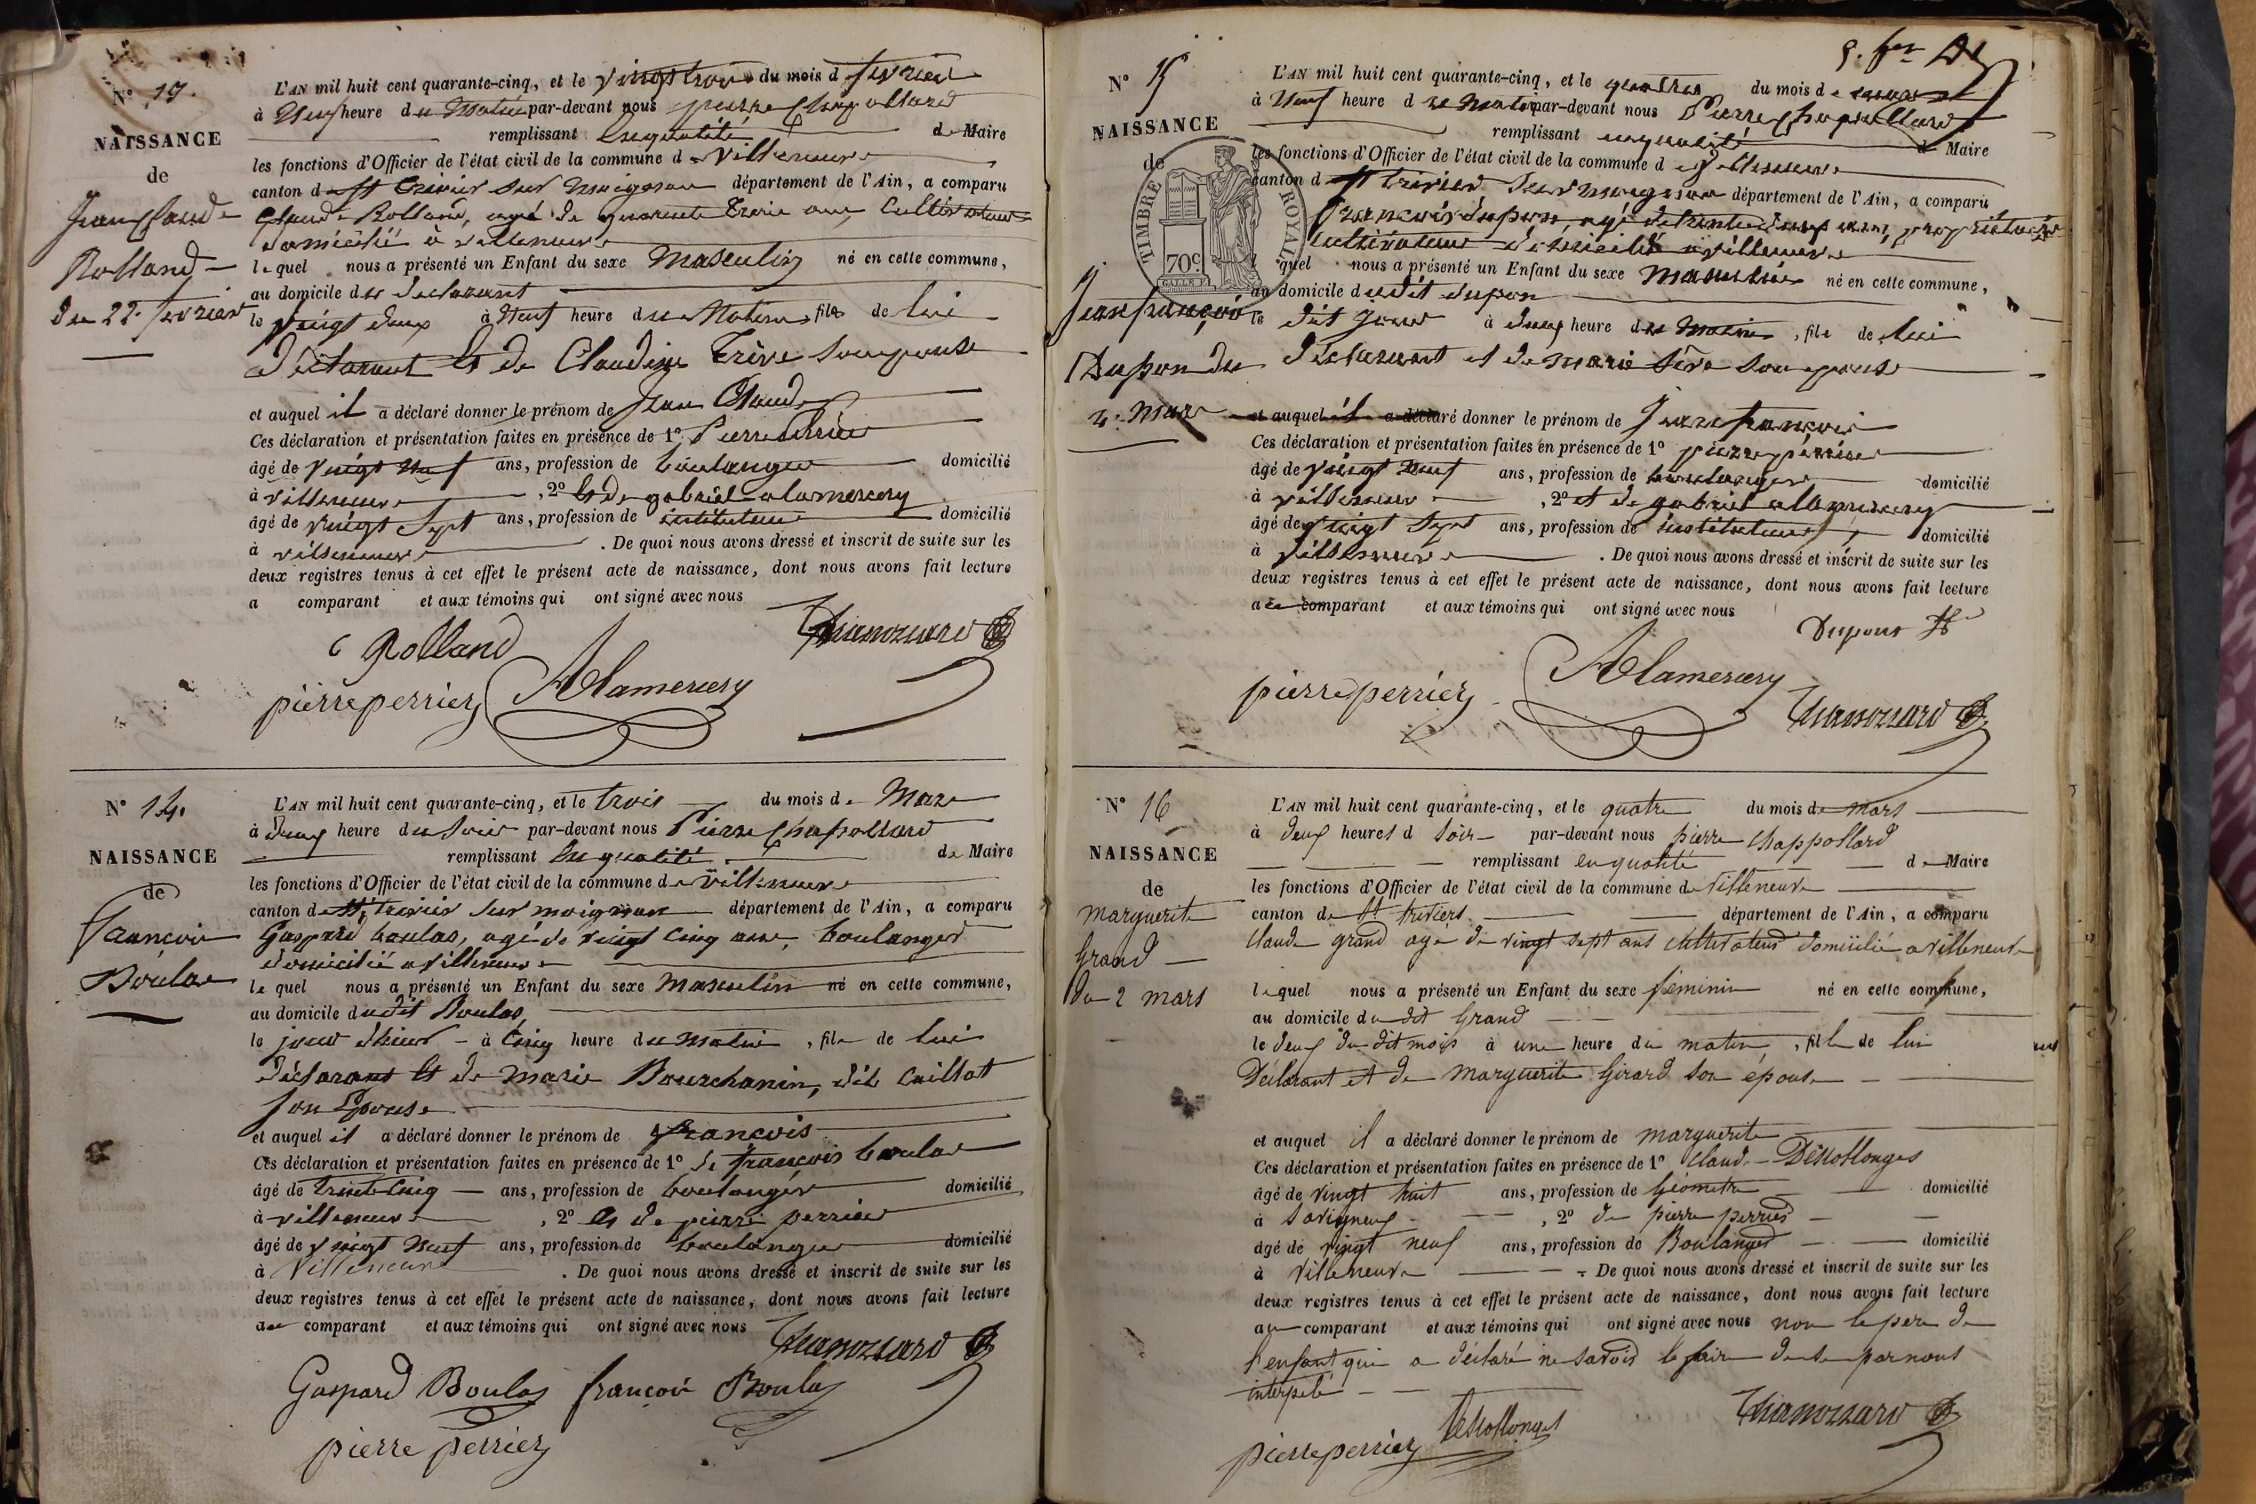 N° 13.
NAISSANCE
de
Jean Claude
Rolland
du 22 fevrier
L'AN mil huit cent quarante-cinq, et le vingt trois du mois de fevrier
à Neuf heure du Matin par-devant nous pierre Chapollard
remplissant en qualité de Maire
les fonctions d'Officier de l'état civil de la commune de Villeneuve
canton de St trivier sur moignan département de l'Ain, a comparu
Claude Rolland, agé de quarante trois ans, Cultivateur
domicilié à villeneuve
lequel nous a présenté un Enfant du sexe Masculin né en cette commune,
au domicile du declarant
le vingt deux à Neuf heure du Matin, fils de lui
déclarant Et de Claudine Trève son epouse
et auquel il a déclaré donner le prénom de Jean Claude
Ces déclaration et présentation faites en présence de 1° Pierre Perrier
âgé de vingt Neuf ans, profession de boulanger domicilié
à villeneuve, 2° Et de gabriel alamercery
âgé de vingt Sept ans, profession de instituteur domicilié
à villeneuve. De quoi nous avons dressé et inscrit de suite sur les
deux registres tenus à cet effet le présent acte de naissance, dont nous avons fait lecture
a comparant et aux témoins qui ont signé avec nous
C Rolland
pierre perrier Alamercery
N° 14.
NAISSANCE
de
francois
Boulas
L'AN mil huit cent quarante-cinq, et le trois du mois de Mars
à deux heure du Soir par-devant nous Pierre Chapollard
remplissant En qualité de Maire
les fonctions d'Officier de l'état civil de la commune de villeneuve
canton de St trivier sur moignan département de l'Ain, a comparu
Gaspard boulas, agé de vingt Cinq ans, boulanger
domicilié a villeneuve
lequel nous a présenté un Enfant du sexe Masculin né en cette commune,
au domicile dudit Boulas,
le jour d'hier à Cinq heure du Matin, fils de lui
déclarant Et de Marie Bourchanin, dite Caillat
son Epouse
et auquel il a déclaré donner le prénom de francois
Ces déclaration et présentation faites en présence de 1° de françois boulas
âgé de trente Cinq ans, profession de boulanger domicilié
à villeneuve, 2° Et de pierre perrier
âgé de vingt Neuf ans, profession de boulanger domicilié
à Villeneuve. De quoi nous avons dressé et inscrit de suite sur les
deux registres tenus à cet effet le présent acte de naissance, dont nous avons fait lecture
au comparant et aux témoins qui ont signé avec nous
Gaspard Boulas françois Boulas
pierre perrier
N° 15
NAISSANCE
de
Jean françois
Dupon du
4. Mars
TIMBRE ROYAL
70 c
L'AN mil huit cent quarante-cinq, et le quatres du mois de mars
à Neuf heure du Matin par-devant nous Pierre Chapollard
remplissant en qualité de Maire
les fonctions d'Officier de l'état civil de la commune de villeneuve
canton de St trivier Sur moignan département de l'Ain, a comparu
francois dupon, agé de trente deux ans, propriétaire
cultivateur domicilié a villeneuve
lequel nous a présenté un Enfant du sexe Masculin né en cette commune,
au domicile dudit dupon
le dit jour à deux heure du Matin, fils de lui
déclarant et de marie Sève son epouse
et auquel il a déclaré donner le prénom de Jean francois
Ces déclaration et présentation faites en présence de 1° pierre périer
âgé de vingt Neuf ans, profession de boulanger domicilié
à villeneuve, 2° et de gabriel allamercery
âgé de vingt Sept ans, profession de instituteur, domicilié
à Villeneuve. De quoi nous avons dressé et inscrit de suite sur les
deux registres tenus à cet effet le présent acte de naissance, dont nous avons fait lecture
au comparant et aux témoins qui ont signé avec nous
Dupont
pierre perrier Alamercery
N° 16
NAISSANCE
de
marguerite
Grand
du 2 mars
L'AN mil huit cent quarante-cinq, et le quatre du mois de mars
à deux heures d Soir par-devant nous pierre Chappollard
remplissant en qualité de Maire
les fonctions d'Officier de l'état civil de la commune de Villeneuve
canton de St triviers département de l'Ain, a comparu
Claude grand agé de vingt sept ans Cultivateur domicilié a villeneuve
lequel nous a présenté un Enfant du sexe féminin né en cette commune,
au domicile du dit Grand
le deux du dit mois à une heure du matin, fille de lui
Déclarant et de Marguerite Girard son épouse
et auquel il a déclaré donner le prénom de marguerite
Ces déclaration et présentation faites en présence de 1° Claude Desbollonges
âgé de vingt huit ans, profession de Géometre domicilié
à Savigneux, 2° de pierre perrier
âgé de vingt neuf ans, profession de Boulanger domicilié
à Villeneuve. De quoi nous avons dressé et inscrit de suite sur les
deux registres tenus à cet effet le présent acte de naissance, dont nous avons fait lecture
au comparant et aux témoins qui ont signé avec nous non le pere de
l'enfant qui a déclaré ne savoir le faire de ce par nous
interpelé
pierre perrier